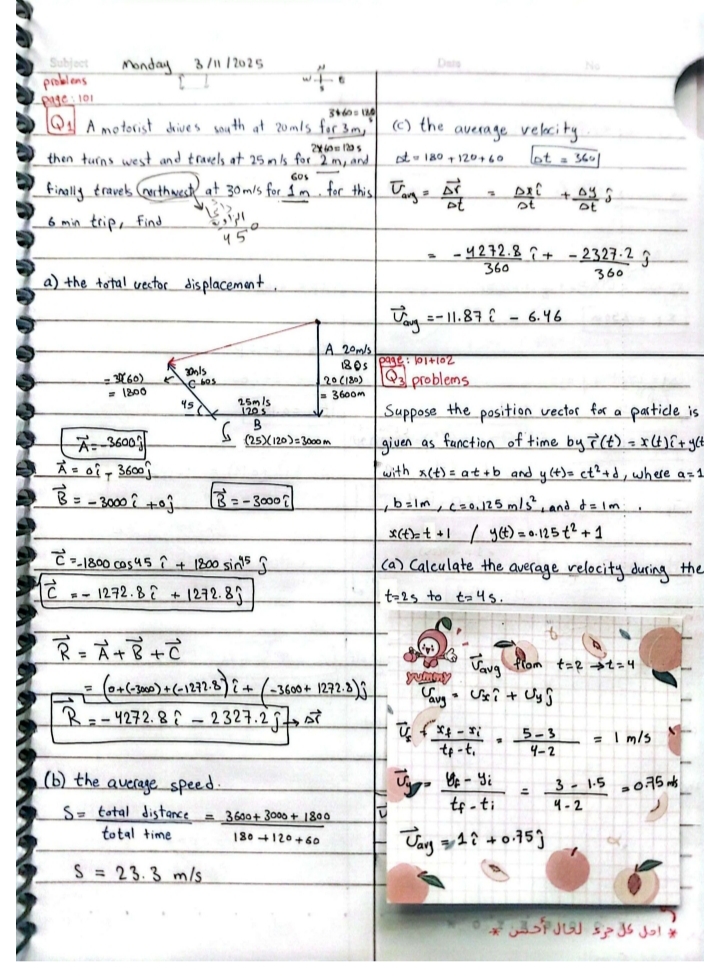 Subject
Monday 3/11/2025
Date
No
problems
page: 101
N
W E
S
3*60=180
Q1 A motorist drives south at 20m/s for 3m,
2*60=120s
then turns west and travels at 25 m/s for 2m, and
60s
finally travels northwest at 30m/s for 1m. for this
6 min trip, Find
45°
a) the total vector displacement.
A 20m/s
180s
20(180)
= 3600m
30m/s
C 60s
= 30(60)
= 1800
45
25m/s
120s
B
(25)(120)=3000m
A = -3600 ĵ
A = 0 î - 3600 ĵ
B = -3000 î + 0 ĵ B = -3000 î
C = -1800 cos45 î + 1800 sin45 ĵ
C = - 1272.8 î + 1272.8 ĵ
R = A + B + C
= (0+(-3000)+(-1272.8) î + (-3600+1272.8) ĵ
R = -4272.8 î - 2327.2 ĵ → Δr
(b) the average speed.
S = total distance / total time = 3600+3000+1800 / 180+120+60
S = 23.3 m/s
(c) the average velocity
Δt = 180+120+60 Δt = 360
Vavg = Δr/Δt = Δx î/Δt + Δy/Δt ĵ
= -4272.8/360 î + -2327.2/360 ĵ
Vavg = -11.87 î - 6.46
page: 101+102
Q3 problems
Suppose the position vector for a particle is
given as function of time by r(t) = x(t) î + y(t
with x(t) = at+b and y(t) = ct²+d, where a=1
, b=1m, c=0.125 m/s², and d=1m.
x(t)=t+1 / y(t)=0.125t²+1
(a) Calculate the average velocity during the
t=2s to t=4s.
yummy
Vavg from t=2 → t=4
Vavg = Vx î + Vy ĵ
Vx = xf - xi / tf - ti = 5-3 / 4-2 = 1 m/s
Vy = yf - yi / tf - ti = 3 - 1.5 / 4-2 = 0.75 m/s
Vavg = 1 î + 0.75 ĵ
* احل كل جزء لحال أحسن *